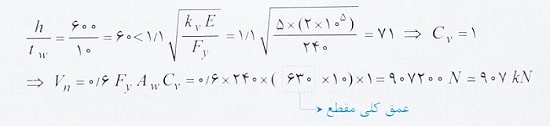 h/t_w = ۶۰۰/۱۰ = ۶۰ < ۱/۱ √(k_v E / F_y) = ۱/۱ √(۵×(۲×۱۰^۵) / ۲۴۰) = ۷۱ ⇒ C_v = ۱
⇒ V_n = ۰/۶ F_y A_w C_v = ۰/۶×۲۴۰×(۶۳۰×۱۰)×۱ = ۹۰۷۲۰۰ N ≃ ۹۰۷ kN
عمق کلی مقطع